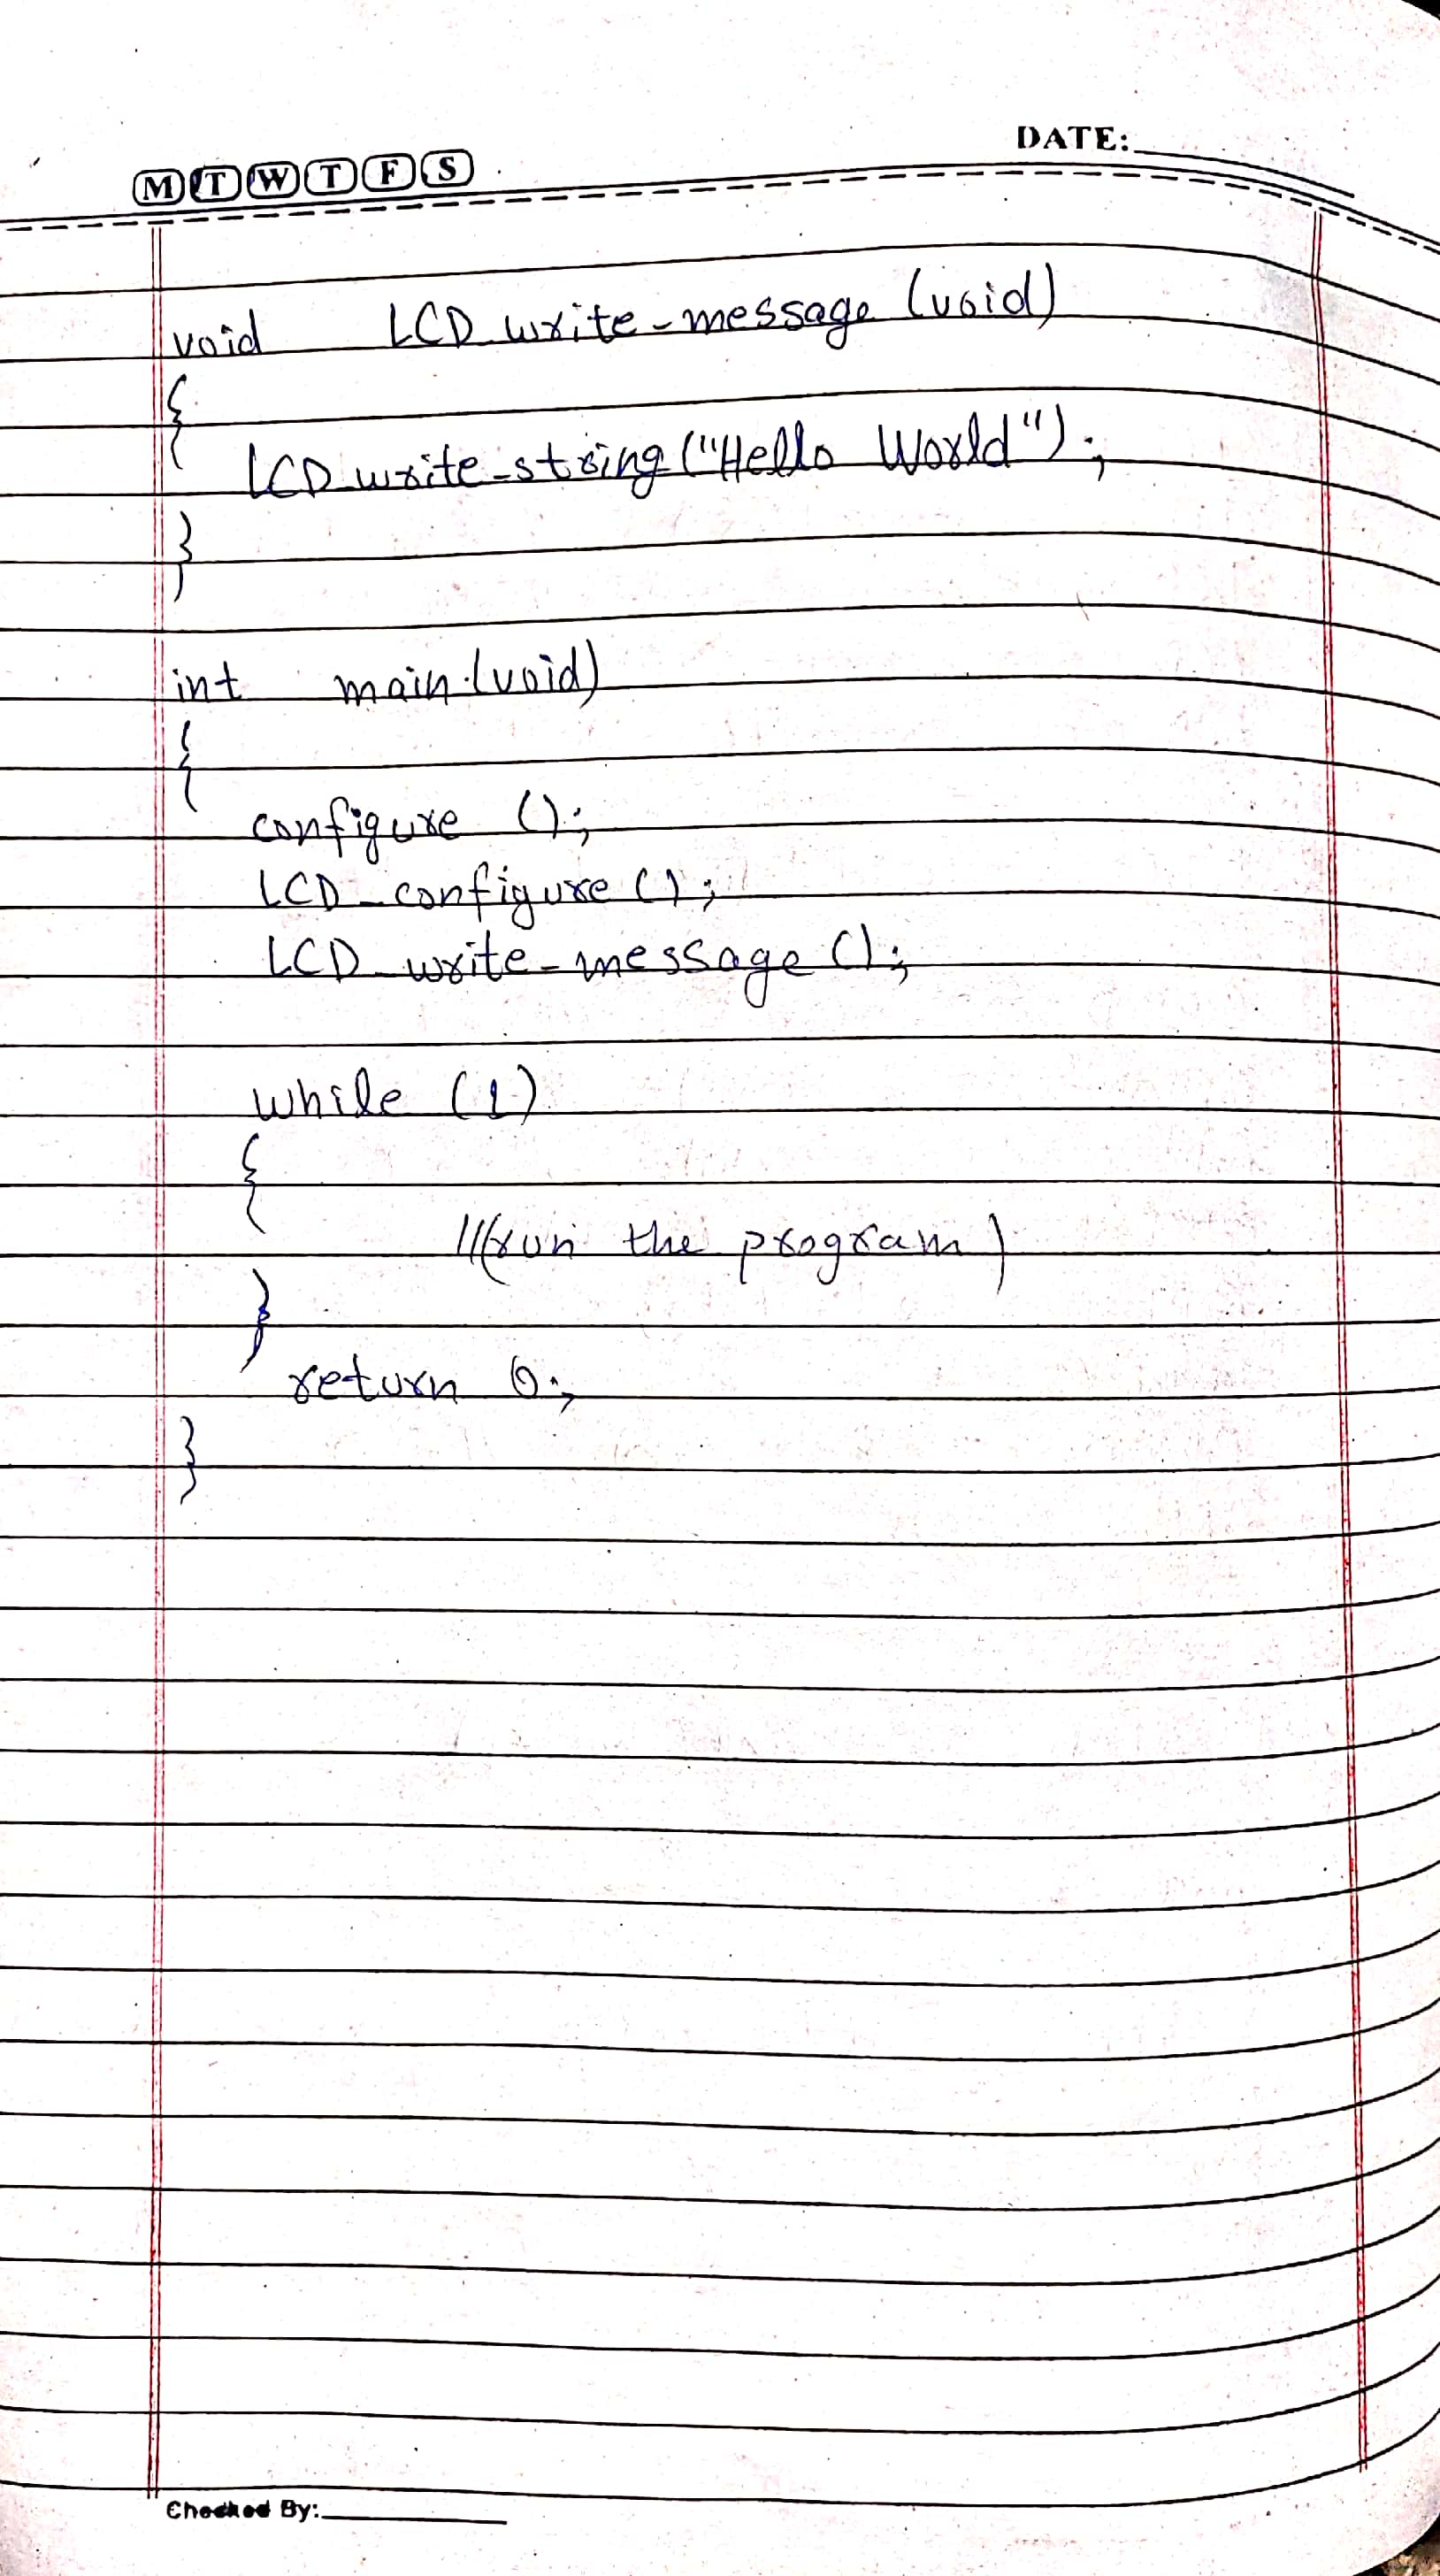 M T W T F S
DATE:
void LCD_write-message (void)
{
LCD_write-string("Hello World");
}
int main(void)
{
configure ();
LCD_configure ();
LCD_write-message ();
while (1)
{
//(run the program)
}
return 0;
}
Checked By: